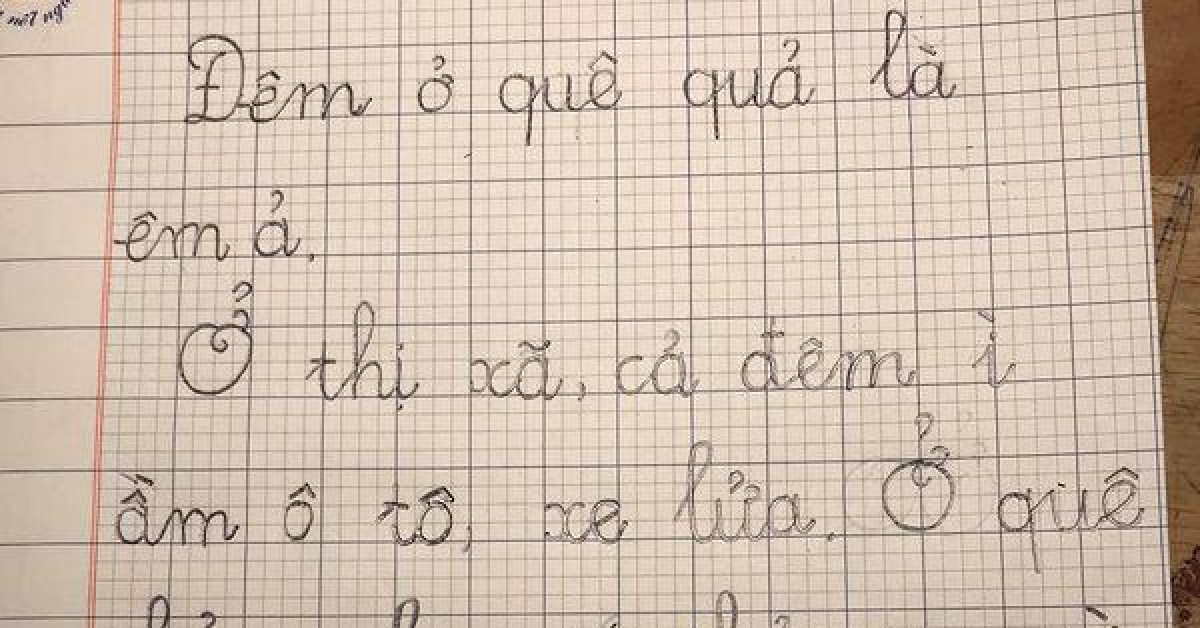 Đêm ở quê quả là
êm ả.
Ở thị xã, cả đêm ì
ầm ô tô, xe lửa. Ở quê